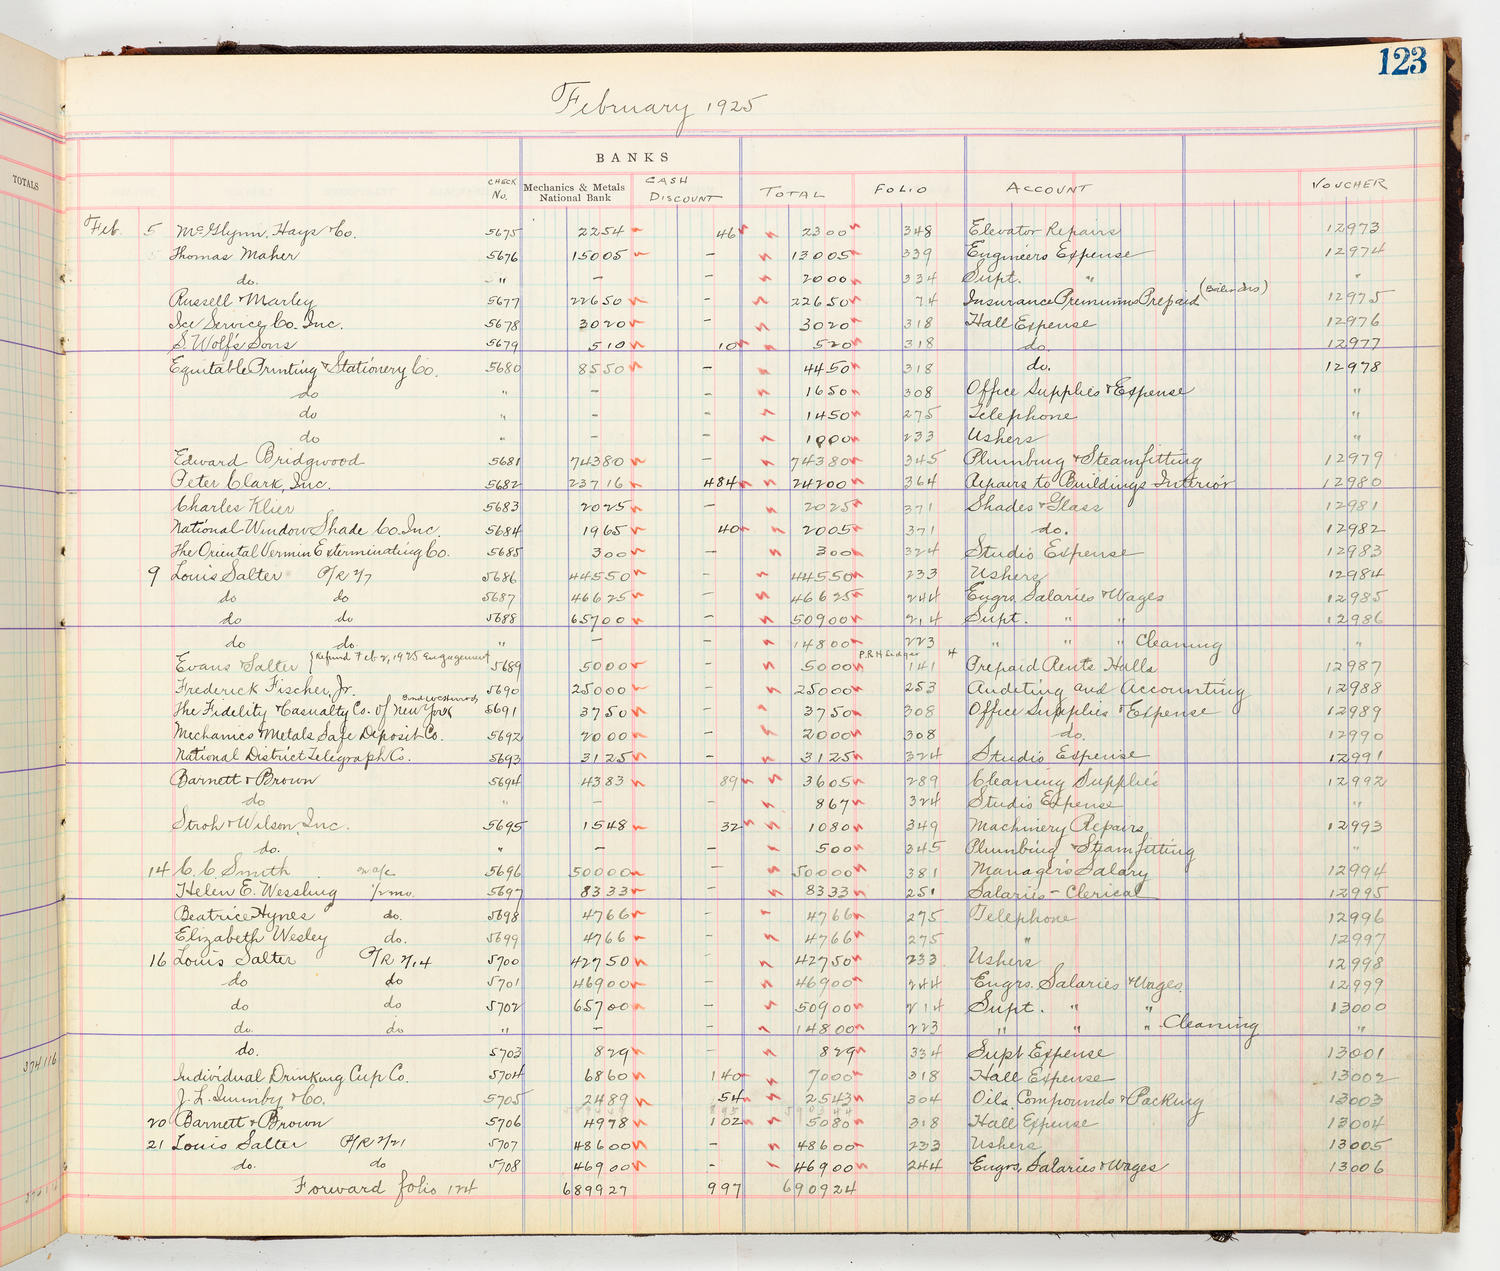 123
February 1925
TOTALS
BANKS
CHECK No. Mechanics & Metals National Bank CASH DISCOUNT TOTAL FOLIO ACCOUNT VOUCHER
Feb. 5 McGlynn, Hays & Co. 5675 2254 46 2300 348 Elevator Repairs 12973
Thomas Maher 5676 15005 - 13005 339 Engineers Expense 12974
do. " - 2000 334 Supt. " "
Russell & Marley 5677 22650 - 22650 74 Insurance Premiums Prepaid 12975
Ice Service Co. Inc. 5678 3020 - 3020 318 Hall Expense 12976
S. Wolf's Sons 5679 510 10 520 318 do. 12977
Equitable Printing & Stationery Co. 5680 8550 - 4450 318 do. 12978
do " - - 1650 308 Office Supplies & Expense "
do " - - 1450 275 Telephone "
do " - - 1000 233 Ushers "
Edward Bridgwood 5681 74380 - 74380 345 Plumbing & Steamfitting 12979
Peter Clark, Inc. 5682 23716 484 24200 364 Repairs to Buildings Interior 12980
Charles Klier 5683 2025 - 2025 371 Shades & Glass 12981
National Window Shade Co. Inc. 5684 1965 40 2005 371 do. 12982
The Oriental Vermin Exterminating Co. 5685 300 - 300 324 Studio Expense 12983
9 Louis Salter P/R 2/7 5686 44550 - 44550 233 Ushers 12984
do do 5687 46625 - 46625 244 Engrs. Salaries & Wages 12985
do do 5688 65700 - 50900 214 Supt. " " 12986
do do. " - - 14800 223 " " " Cleaning "
Evans & Salter {Refund Feb 2, 1925 Engagement 5689 5000 - 5000 P.R.H Ledger 4 141 Prepaid Rents Halls 12987
Frederick Fischer, Jr. 5690 25000 - 25000 253 Auditing and Accounting 12988
The Fidelity & Casualty Co. of New York 5691 3750 - 3750 308 Office Supplies & Expense 12989
Mechanics & Metals Safe Deposit Co. 5692 2000 - 2000 308 do. 12990
National District Telegraph Co. 5693 3125 - 3125 324 Studio Expense 12991
Barnett & Brown 5694 4383 89 3605 289 Cleaning Supplies 12992
do " - - 867 324 Studio Expense "
Stroh & Wilson, Inc. 5695 1548 32 1080 349 Machinery Repairs 12993
do. " - - 500 345 Plumbing & Steamfitting "
14 C. C. Smith on a/c 5696 50000 - 50000 381 Manager's Salary 12994
Helen E. Wessling ½ mo. 5697 8333 - 8333 251 Salaries - Clerical 12995
Beatrice Hynes do. 5698 4766 - 4766 275 Telephone 12996
Elizabeth Wesley do. 5699 4766 - 4766 275 " 12997
16 Louis Salter P/R 2/14 5700 42750 - 42750 233 Ushers 12998
do do 5701 46900 - 46900 244 Engrs. Salaries & Wages 12999
do do 5702 65700 - 50900 214 Supt. " " 13000
do. do " - - 14800 223 " " " Cleaning "
do. 5703 829 - 829 334 Supt Expense 13001
374116
Individual Drinking Cup Co. 5704 6860 140 7000 318 Hall Expense 13002
J. L. Quimby & Co. 5705 2489 54 2543 304 Oils, Compounds & Packing 13003
20 Barnett & Brown 5706 4978 102 5080 318 Hall Expense 13004
21 Louis Salter P/R 2/21 5707 48600 - 48600 233 Ushers 13005
do. do 5708 46900 - 46900 244 Engrs. Salaries & Wages 13006
Forward folio 124 689927 997 690924